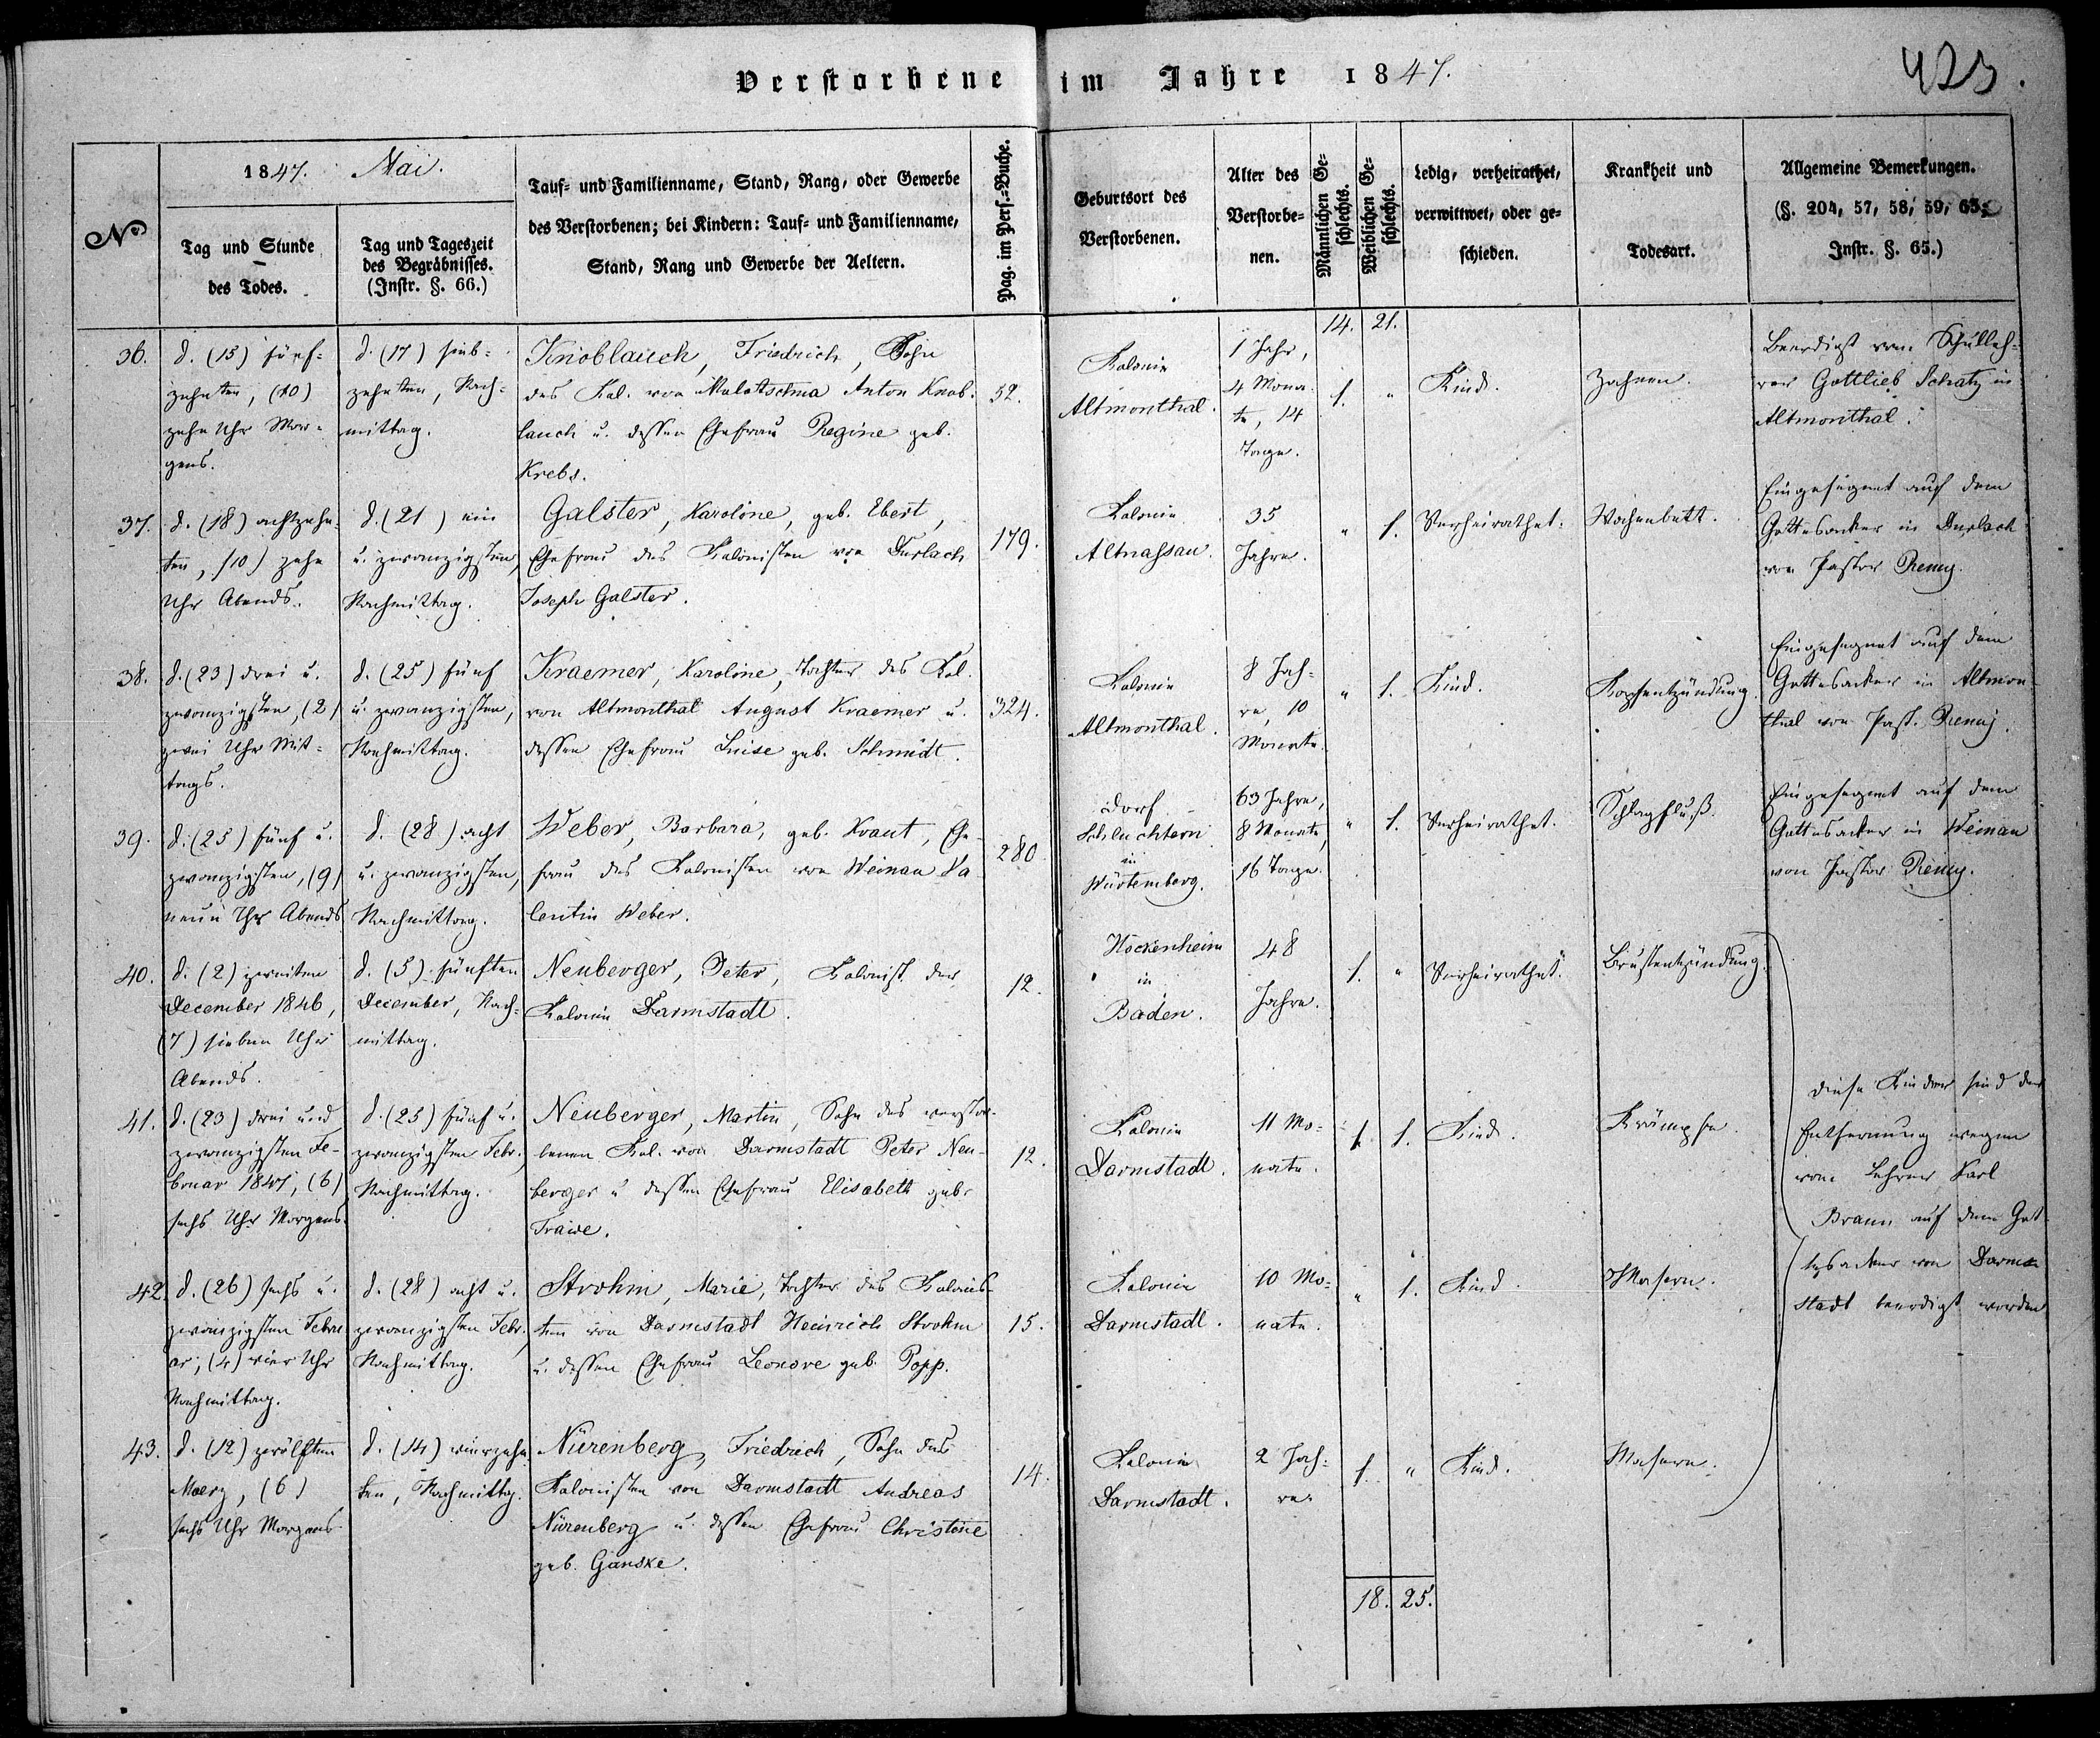 Verstorbene im Jahre 1847.
423.
No
1847. Mai.
Tag und Stunde
des Todes.
Tag und Tageszeit
des Begräbnisses.
(Instr. §. 66.)
Tauf- und Familienname, Stand, Rang, oder Gewerbe
des Verstorbenen; bei Kindern: Tauf- und Familienname,
Stand, Rang und Gewerbe der Aeltern.
Pag. im Pers.-Buche.
Geburtsort des
Verstorbenen.
Alter des
Verstorbe-
nen.
Männlichen Ge-
schlechts.
Weiblichen Ge-
schlechts.
Ledig, verheirathet,
verwittwet, oder ge-
schieden.
Krankheit und
Todesart.
Allgemeine Bemerkungen.
(§. 204, 57, 58, 59, 63;
Instr. §. 65.)
14. 21.
36.
d. (15) fünf-
zehnten, (10)
zehn Uhr Mor-
gens.
d. (17) sieb-
zehnten, Nach-
mittag.
Knoblauch, Friedrich, Sohn
des Kol. von Malotschna Anton Knob-
lauch u. dessen Ehefrau Regine geb.
Krebs.
52.
Kolonie
Altmonthal.
1 Jahr,
4 Mona-
te, 14
Tage.
1. "
Kind.
Zahnen.
Beerdigt vom Schulleh-
rer Gottlieb Schatz in
Altmonthal.
37.
d. (18) achtzehn-
ten, (10) zehn
Uhr Abends.
d. (21) ein
u. zwanzigsten,
Nachmittag.
Galster, Karoline, geb. Ebert,
Ehefrau des Kolonisten von Durlach
Joseph Galster.
179.
Kolonie
Altnassau.
35
Jahre.
" 1.
Verheirathet.
Wochenbett.
Eingesegnet auf dem
Gottesacker in Durlach
von Pastor Remy.
38.
d. (23) drei u.
zwanzigsten, (2)
zwei Uhr Mit-
tags.
d. (25) fünf
u. zwanzigsten,
Nachmittag.
Kraemer, Karoline, Tochter des Kol.
von Altmonthal August Kraemer u.
dessen Ehefrau Luise geb. Schmidt.
324.
Kolonie
Altmonthal.
8 Jah-
re, 10
Monate.
" 1.
Kind.
Kopfentzündung.
Eingesegnet auf dem
Gottesacker in Altmon-
thal von Past. Remy.
39.
d. (25) fünf u.
zwanzigsten, (9)
neun Uhr Abends
d. (28) acht
u. zwanzigsten,
Nachmittag.
Weber, Barbara, geb. Kraut, Ehe-
frau des Kolonisten von Weinau Va
lentin Weber.
280.
Dorf
Schluchtern
in
Würtemberg.
63 Jahre,
8 Monate,
16 Tage.
" 1.
Verheirathet.
Schlagfluß.
Eingesegnet auf dem
Gottesacker in Weinau
von Pastor Remy.
40.
d. (2) zweiten
December 1846,
(7) sieben Uhr
Abends.
d. (5) fünften
December, Nach-
mittag.
Neuberger, Peter, Kolonist der
Kolonie Darmstadt.
12.
Hockenheim
in
Baden.
48
Jahre.
1. "
Verheirathet.
Brustentzündung.
41.
d. (23) drei und
zwanzigsten Fe-
bruar 1847, (6)
sechs Uhr Morgens.
d. (25) fünf u.
zwanzigsten Febr.,
Nachmittag.
Neuberger, Martin, Sohn des verstor-
benen Kol. von Darmstadt Peter Neu-
berger u. dessen Ehefrau Elisabeth geb.
12.
Kolonie
Darmstadt.
11 Mo-
nate.
1. 1.
Kind.
Krämpfe.
Diese Kinder sind der
Entfernung wegen
vom Lehrer Karl
Braun auf dem Got-
tesacker von Darm-
stadt beerdigt worden
42.
d. (26) sechs u.
zwanzigsten Febru
ar, (4) vier Uhr
Nachmittag.
d. (28) acht u.
zwanzigsten Febr.,
Nachmittag.
Strohm, Marie, Tochter des Kolonis-
ten von Darmstadt Heinrich Strohm
u. dessen Ehefrau Leonore geb. Popp.
15.
Kolonie
Darmstadt.
10 Mo-
nate.
" 1.
Kind.
Masern.
43.
d. (12) zwölften
Maerz, (6)
sechs Uhr Morgens.
d. (14) vierzehn
ten, Nachmittag.
Nürenberg, Friedrich, Sohn des
Kolonisten von Darmstadt Andreas
Nürenberg u. dessen Ehefrau Christine
geb. Ganske.
14.
Kolonie
Darmstadt.
2 Jah-
re.
1. "
Kind.
Masern.
18. 25.